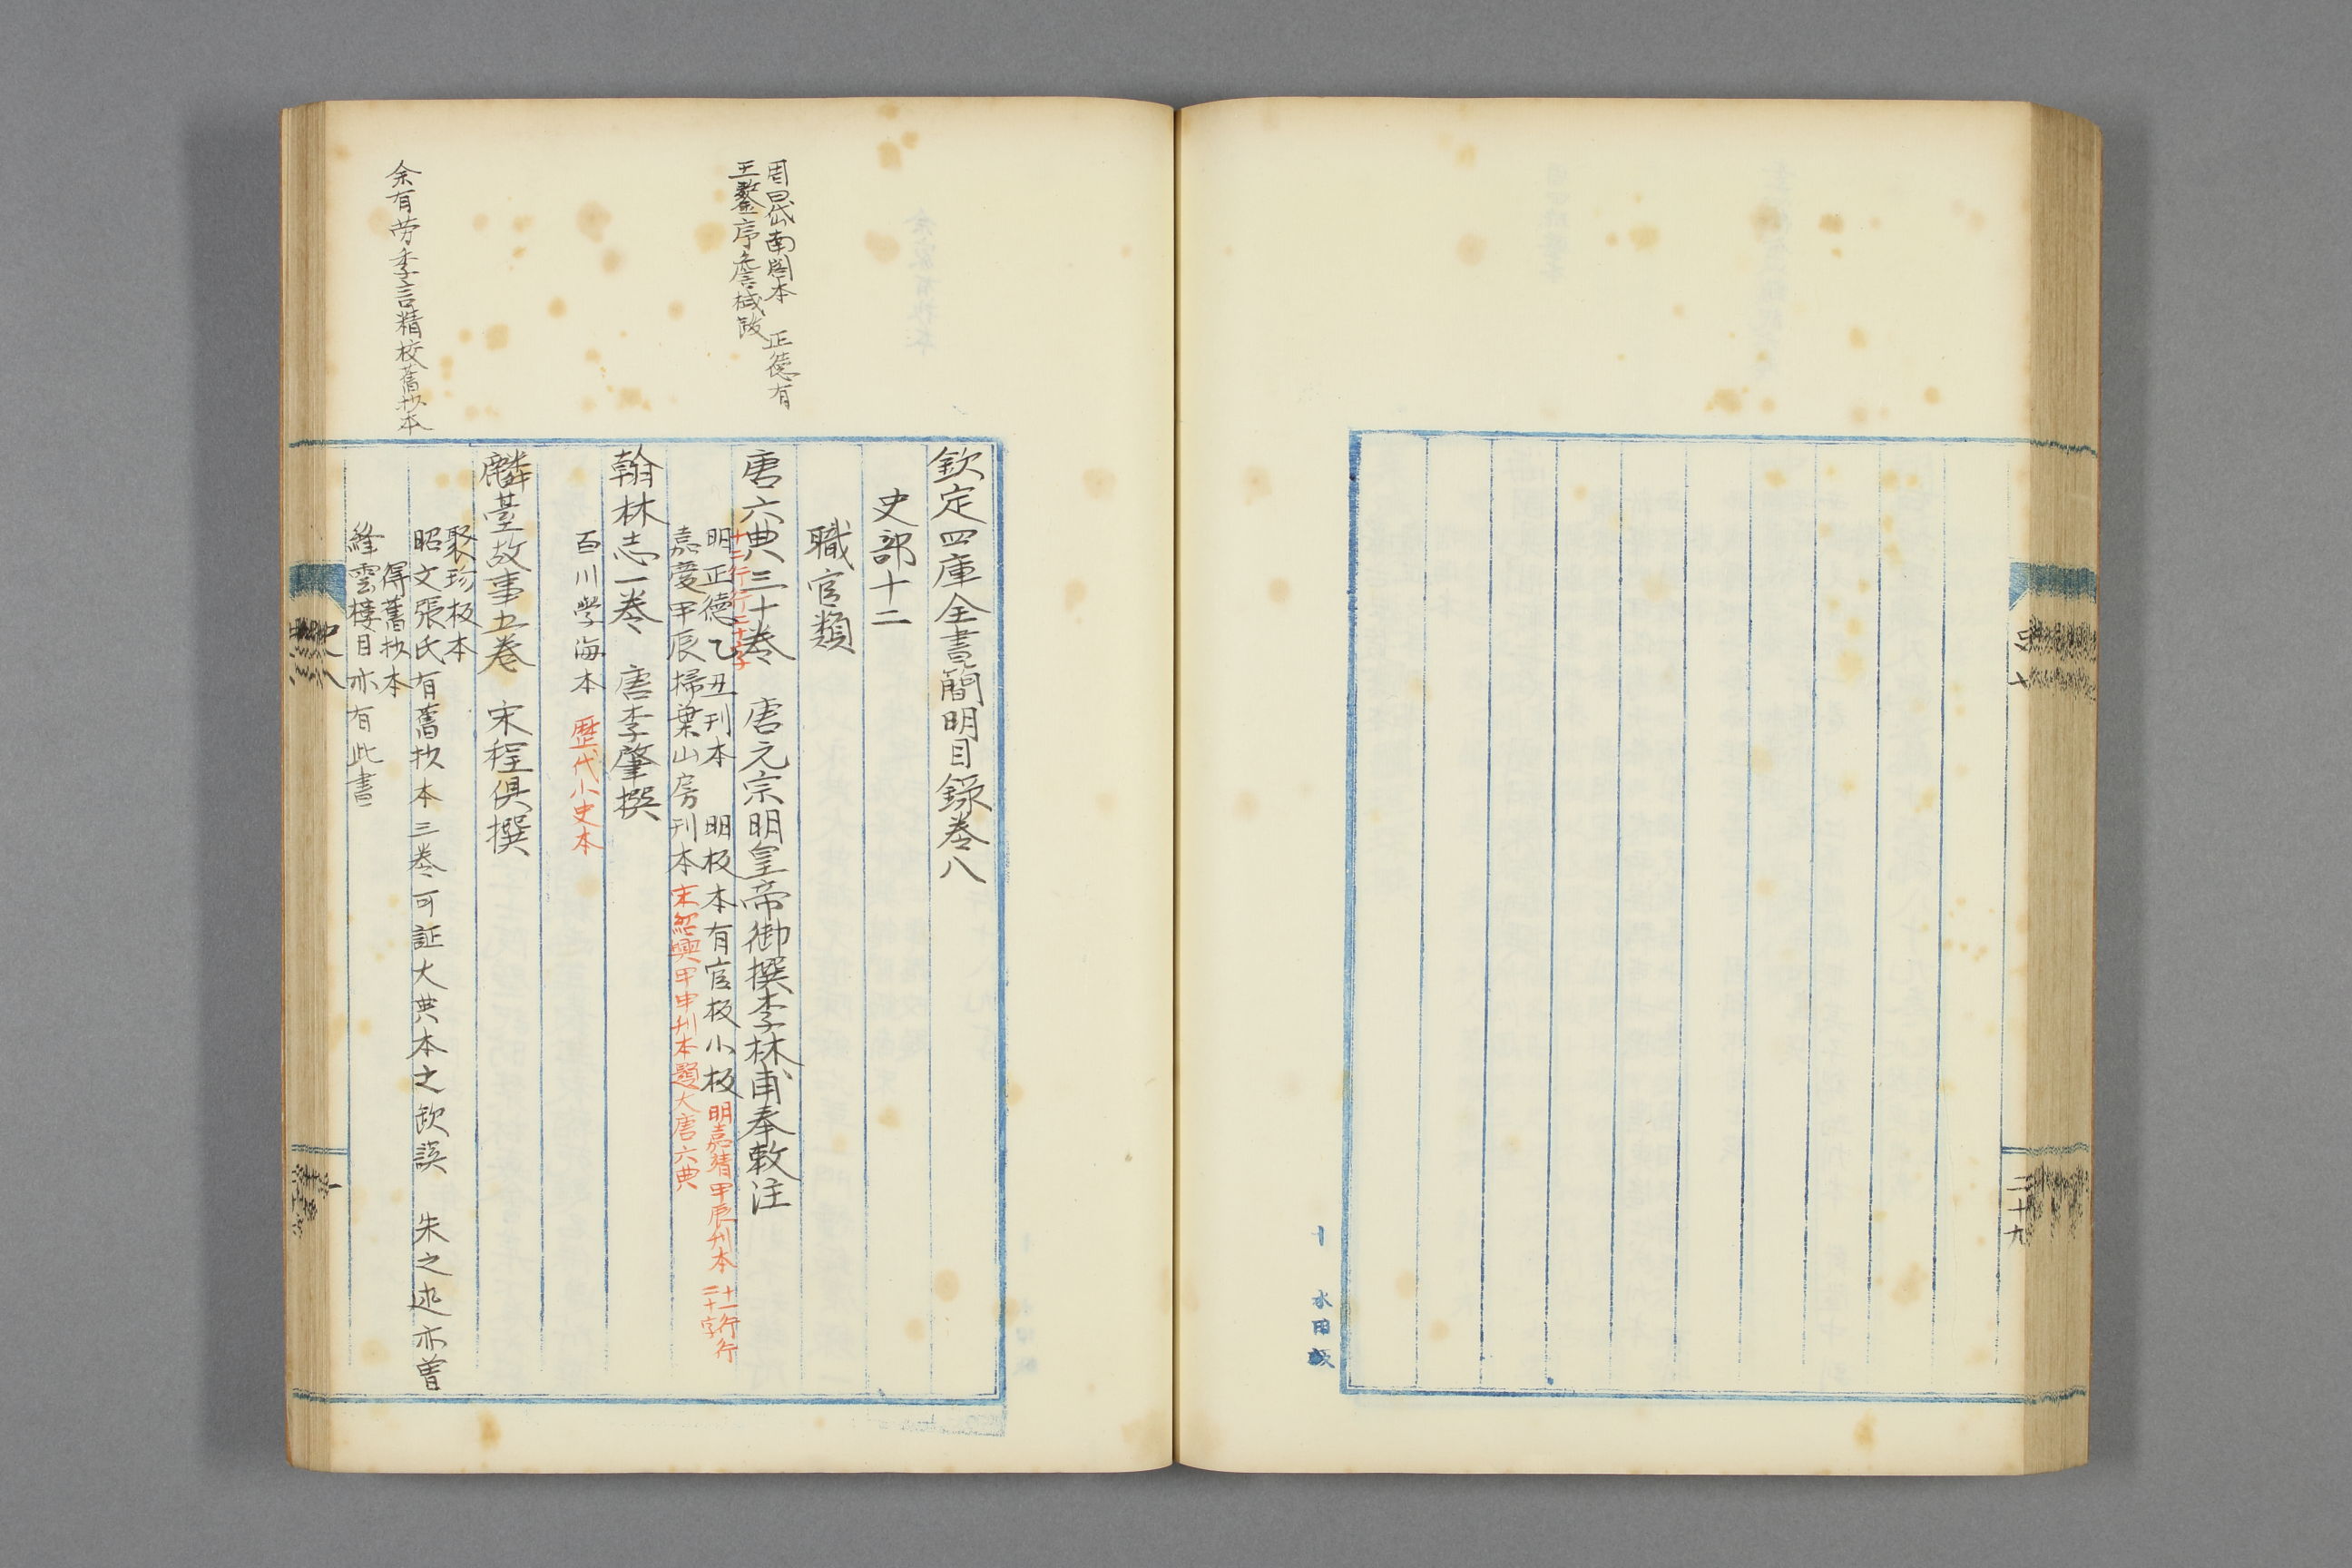 二十九
水田
欽定四庫全書簡明目錄卷八
史部十二
職官類
唐六典三十卷　唐元宗明皇帝御撰李林甫奉敕注
十二行行二十字
明正德乙丑刊本　明板本有官板小板　明嘉靖甲辰刊本　十一行行二十字
嘉慶甲辰掃葉山房刊本　宋紹興甲申刊本題大唐六典
翰林志一卷　唐李肇撰
百川學海本　歷代小史本
麟臺故事五卷　宋程俱撰
聚珍板本
昭文張氏有舊抄本三卷可証大典本之欽誤　朱之迹亦曽
得舊抄本
絳雲樓目亦有此書
周曰岱南閣本　正德有
王鏊序詹棫跋
余有勞季言精校舊抄本